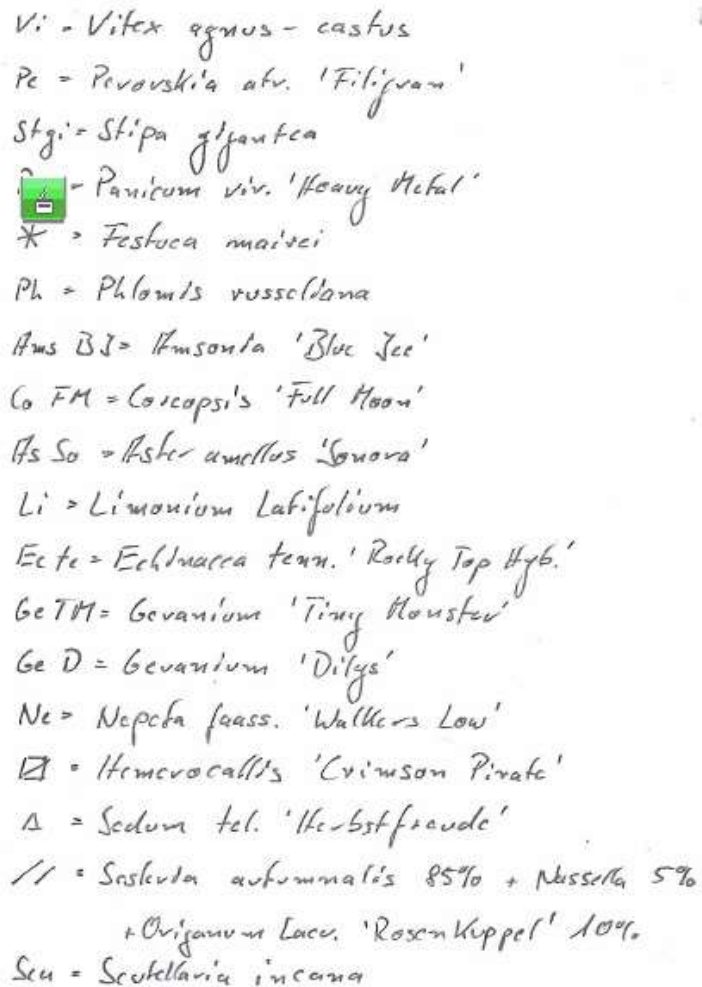 Vi = Vitex agnus-castus
Pe = Perovskia atr. 'Filigran'
Stgi = Stipa gigantea
= Panicum vir. 'Heavy Metal'
* = Festuca mairei
Ph = Phlomis russeliana
Ams BI = Amsonia 'Blue Ice'
Co FM = Coreopsis 'Full Moon'
As So = Aster amellus 'Sonora'
Li = Limonium latifolium
Ec te = Echinacea tenn. 'Rocky Top Hyb.'
Ge TM = Geranium 'Tiny Monster'
Ge D = Geranium 'Dilys'
Ne = Nepeta faass. 'Walkers Low'
⍁ = Hemerocallis 'Crimson Pirate'
Δ = Sedum tel. 'Herbstfreude'
// = Sesleria autumnalis 85% + Nassella 5%
+ Origanum laev. 'Rosenkuppel' 10%
Scu = Scutellaria incana